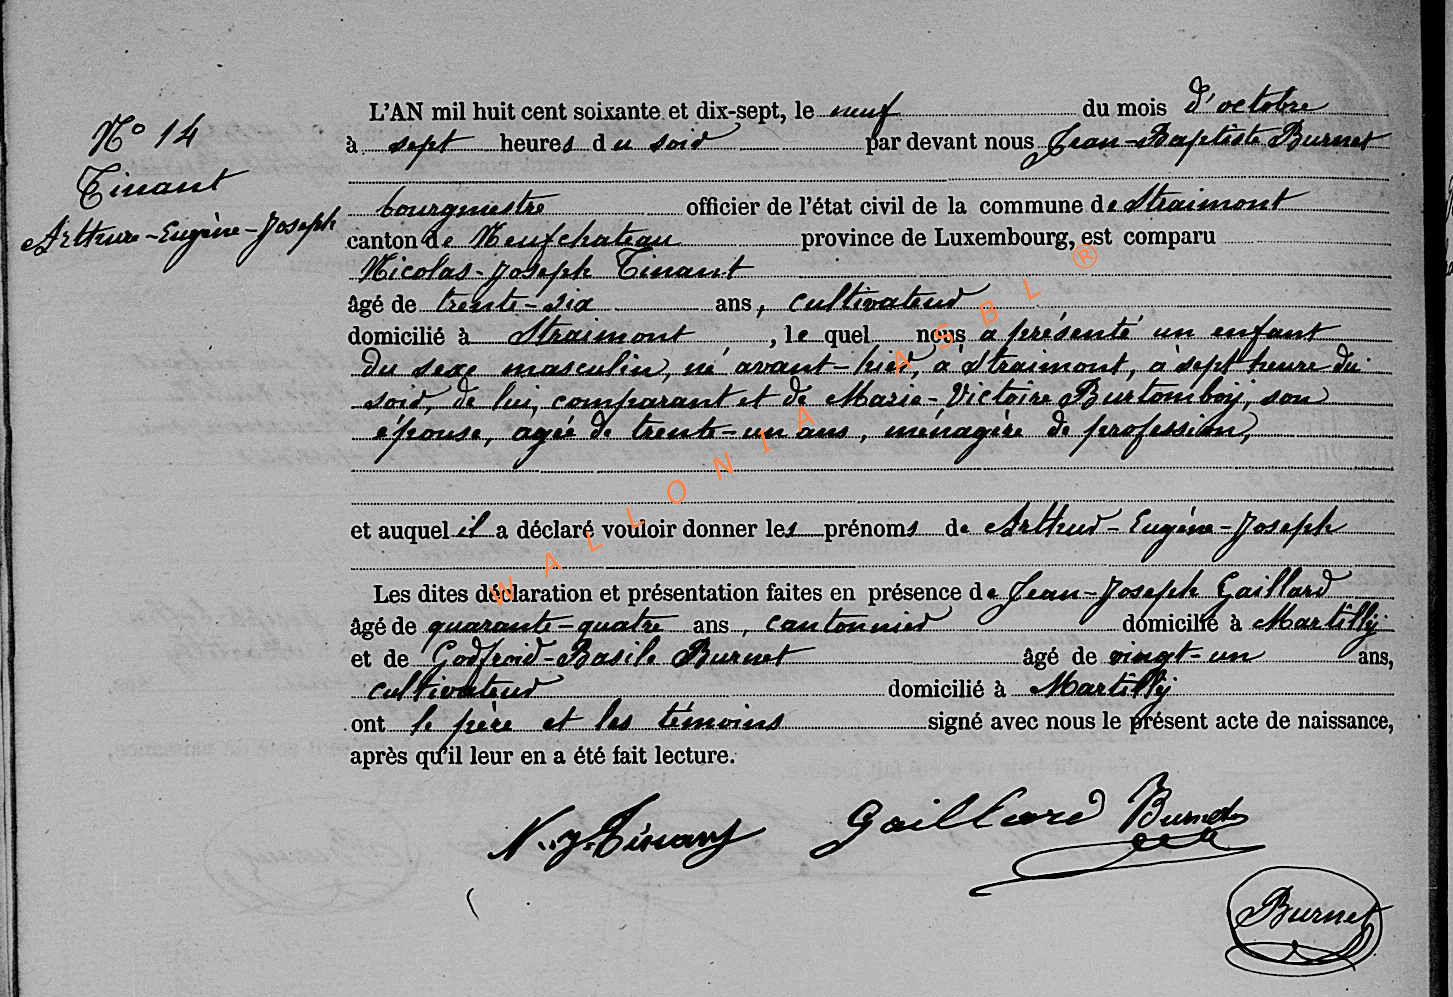 N° 14
Tinant
Arthur-Eugène-Joseph
L'AN mil huit cent soixante et dix-sept, le neuf du mois d'octobre
à sept heures du soir par devant nous Jean-Baptiste Burnet
bourgmestre officier de l'état civil de la commune de Straimont
canton de Neufchateau province de Luxembourg, est comparu
Nicolas-Joseph Tinant
âgé de trente-six ans, cultivateur
domicilié à Straimont, le quel nous a présenté un enfant
du sexe masculin, né avant-hier, à Straimont, à sept heure du
soir, de lui, comparant et de Marie-Victoire Burtomboÿ, son
épouse, agée de trente-un ans, ménagère de profession,
et auquel il a déclaré vouloir donner les prénoms de Arthur-Eugène-Joseph
Les dites déclaration et présentation faites en présence de Jean-Joseph Gaillard
âgé de quarante-quatre ans, cantonnier domicilié à Martilly
et de Godfroid-Basile Burnet âgé de vingt-un ans,
cultivateur domicilié à Martilly
ont le père et les témoins signé avec nous le présent acte de naissance,
après qu'il leur en a été fait lecture.
N.-J. Tinant Gaillard Burnet
Burnet
WALLONIA ASBL ®